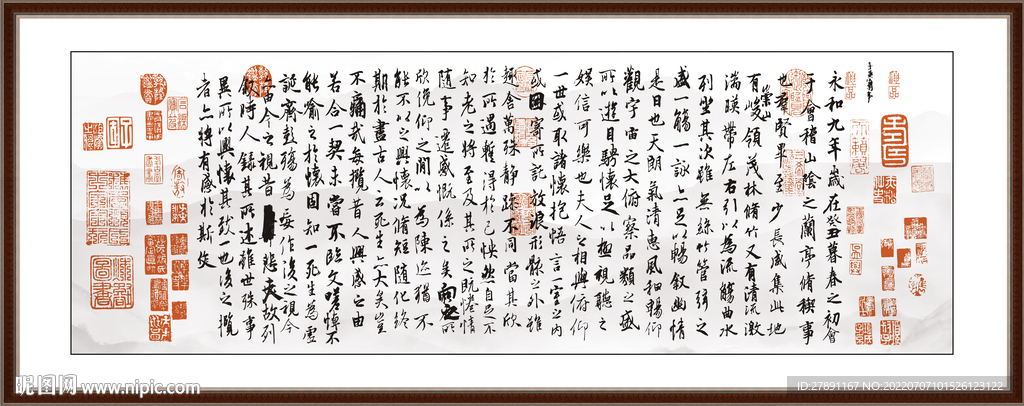 永和九年歲在癸丑暮春之初會
于會稽山陰之蘭亭脩稧事
也羣賢畢至少長咸集此地
有崇山峻領茂林脩竹又有清流激
湍暎帶左右引以為流觴曲水
列坐其次雖無絲竹管弦之
盛一觴一詠亦足以暢敘幽情
是日也天朗氣清惠風和暢仰
觀宇宙之大俯察品類之盛
所以遊目騁懷足以極視聽之
娛信可樂也夫人之相與俯仰
一世或取諸懷抱悟言一室之內
或因寄所託放浪形骸之外雖
趣舍萬殊靜躁不同當其欣
於所遇暫得於己怏然自足不
知老之將至及其所之既惓情
隨事遷感慨係之矣向之所
欣俛仰之閒以為陳迹猶不
能不以之興懷況脩短隨化終
期於盡古人云死生亦大矣豈
不痛哉每攬昔人興感之由
若合一契未嘗不臨文嗟悼不
能喻之於懷固知一死生為虛
誕齊彭殤為妄作後之視今
亦由今之視昔悲夫故列
敘時人錄其所述雖世殊事
異所以興懷其致一也後之攬
者亦將有感於斯文
昵图网 www.nipic.com
ID:27891167 NO:20220707101526123122